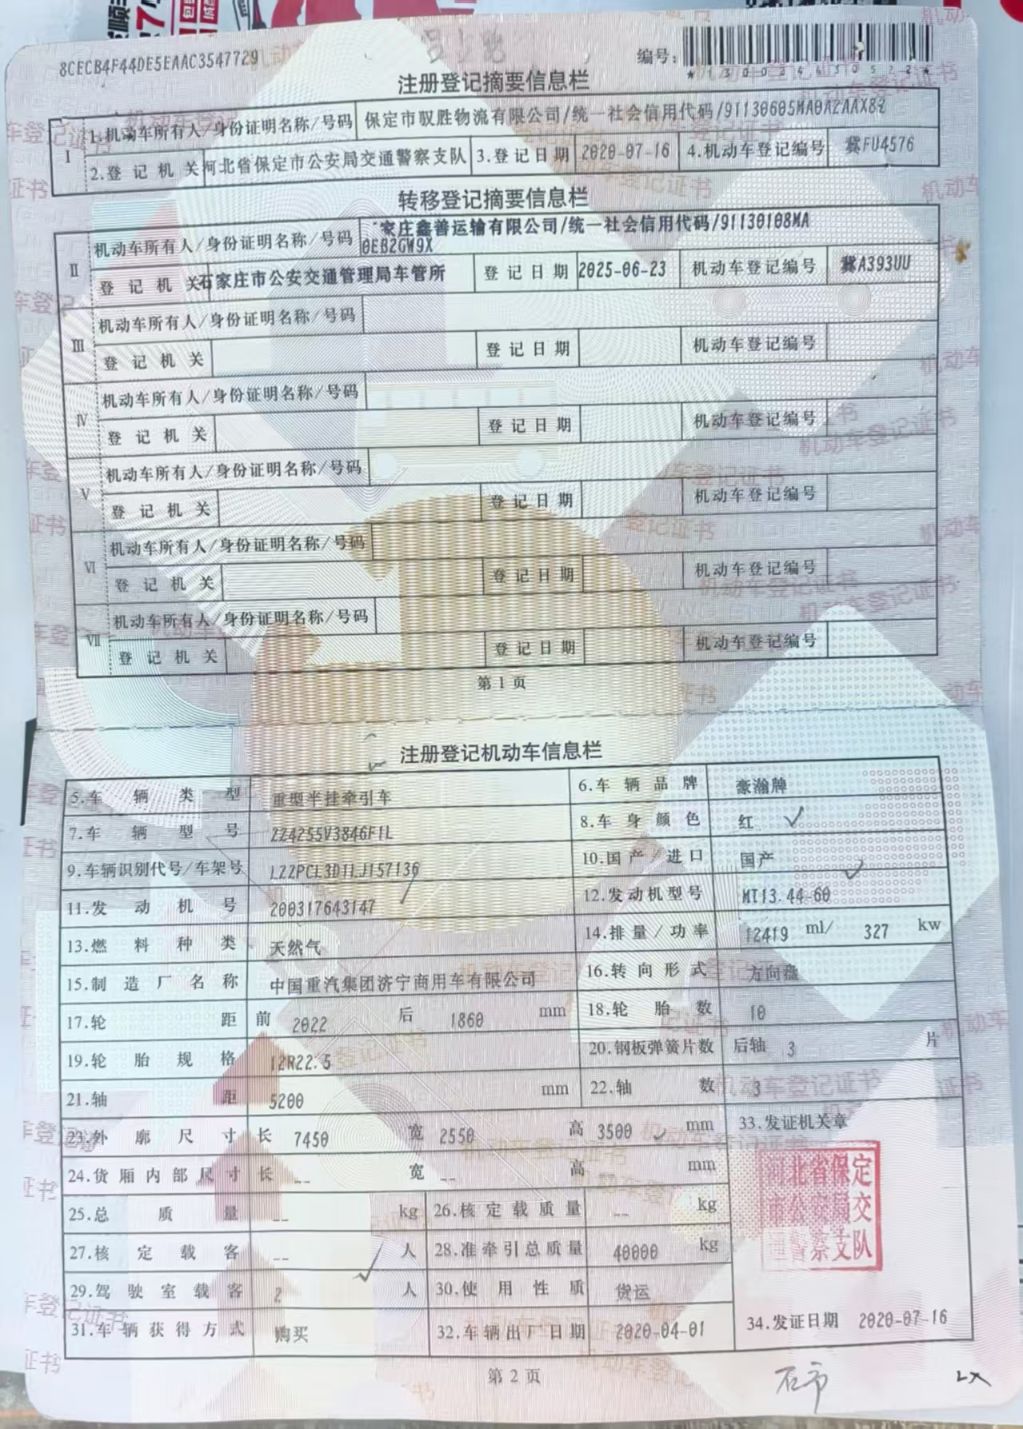 8CECB4F44DE5EAAC3547729
编号:
注册登记摘要信息栏
Ⅰ 1.机动车所有人/身份证明名称/号码 保定市驭胜物流有限公司/统一社会信用代码/91130605MA0A2AAX82
2.登记机关 河北省保定市公安局交通警察支队 3.登记日期 2020-07-16 4.机动车登记编号 冀FU4576
转移登记摘要信息栏
Ⅱ 机动车所有人/身份证明名称/号码 家庄鑫善运输有限公司/统一社会信用代码/91130108MA
0EB2GW9X
登记机关 石家庄市公安交通管理局车管所 登记日期 2025-06-23 机动车登记编号 冀A393UU
Ⅲ 机动车所有人/身份证明名称/号码
登记机关 登记日期 机动车登记编号
Ⅳ 机动车所有人/身份证明名称/号码
登记机关 登记日期 机动车登记编号
Ⅴ 机动车所有人/身份证明名称/号码
登记机关 登记日期 机动车登记编号
Ⅵ 机动车所有人/身份证明名称/号码
登记机关 登记日期 机动车登记编号
Ⅶ 机动车所有人/身份证明名称/号码
登记机关 登记日期 机动车登记编号
第1页
注册登记机动车信息栏
5.车辆类型 重型半挂牵引车 6.车辆品牌 豪瀚牌
7.车辆型号 ZZ4255V3846F1L 8.车身颜色 红
9.车辆识别代号/车架号 LZZPCL3D1LJ157136 10.国产/进口 国产
11.发动机号 200317643147 12.发动机型号 MT13.44-60
13.燃料种类 天然气 14.排量/功率 12419 ml/ 327 kw
15.制造厂名称 中国重汽集团济宁商用车有限公司 16.转向形式 方向盘
17.轮距 前 2022 后 1860 mm 18.轮胎数 10
19.轮胎规格 12R22.5 20.钢板弹簧片数 后轴 3 片
21.轴距 5200 mm 22.轴数 3
23.外廓尺寸 长 7450 宽 2550 高 3500 mm 33.发证机关章
24.货厢内部尺寸 长 -- 宽 -- 高 mm
25.总质量 -- kg 26.核定载质量 -- kg
27.核定载客 -- 人 28.准牵引总质量 40000 kg
河北省保定
市公安局交
通警察支队
29.驾驶室载客 2 人 30.使用性质 货运
31.车辆获得方式 购买 32.车辆出厂日期 2020-04-01 34.发证日期 2020-07-16
第2页
石市 LX